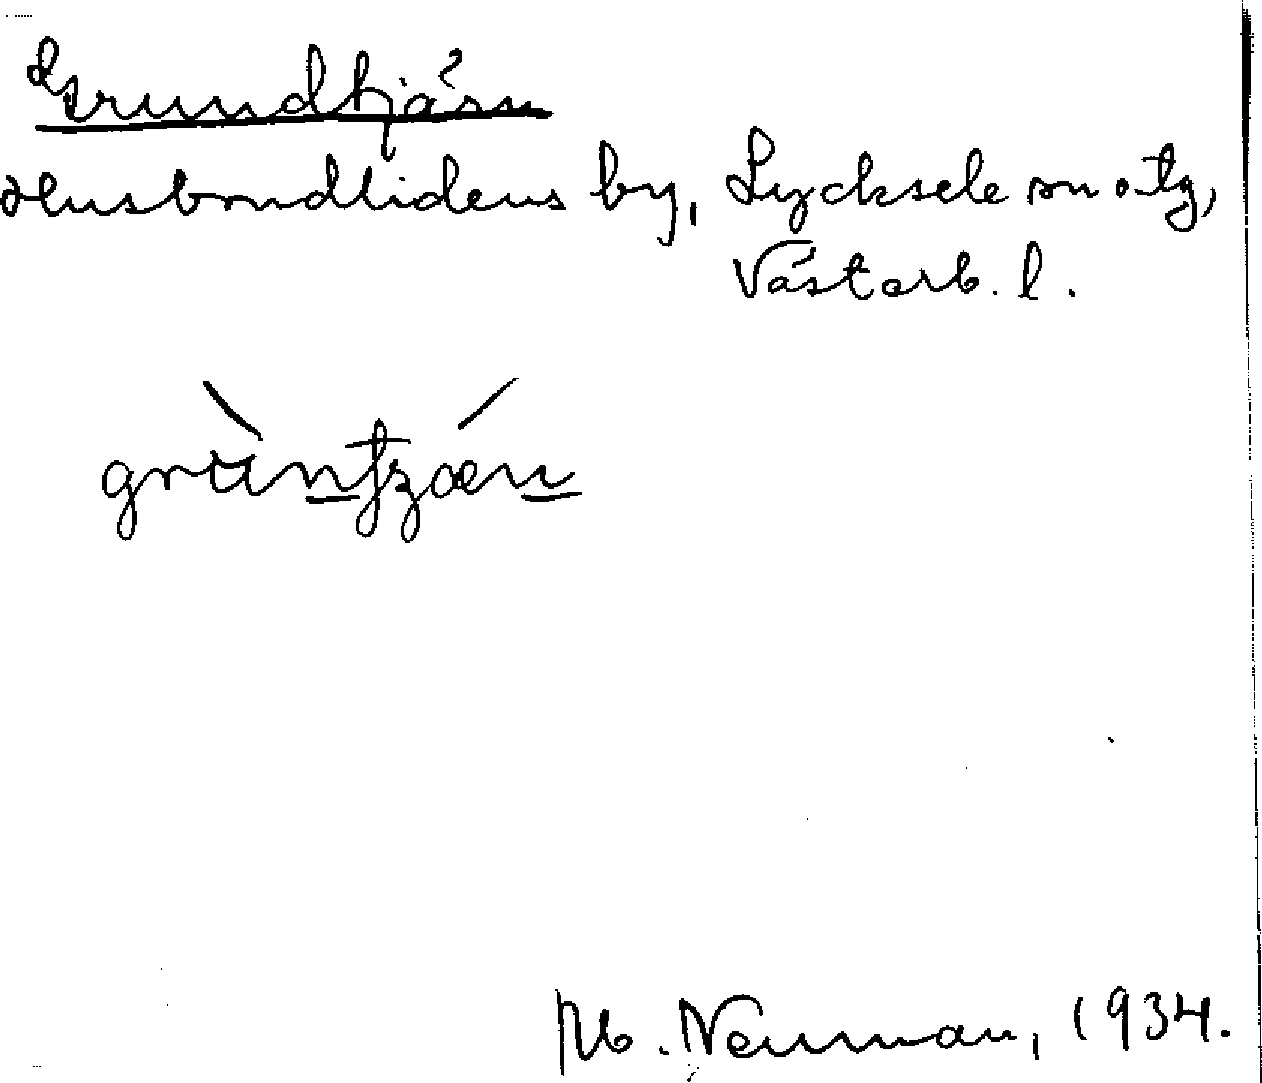 Grundtjärn
Husbondlidens by, Lycksele sn o. tg,
Västerb. l.
M. Neuman, 1934.